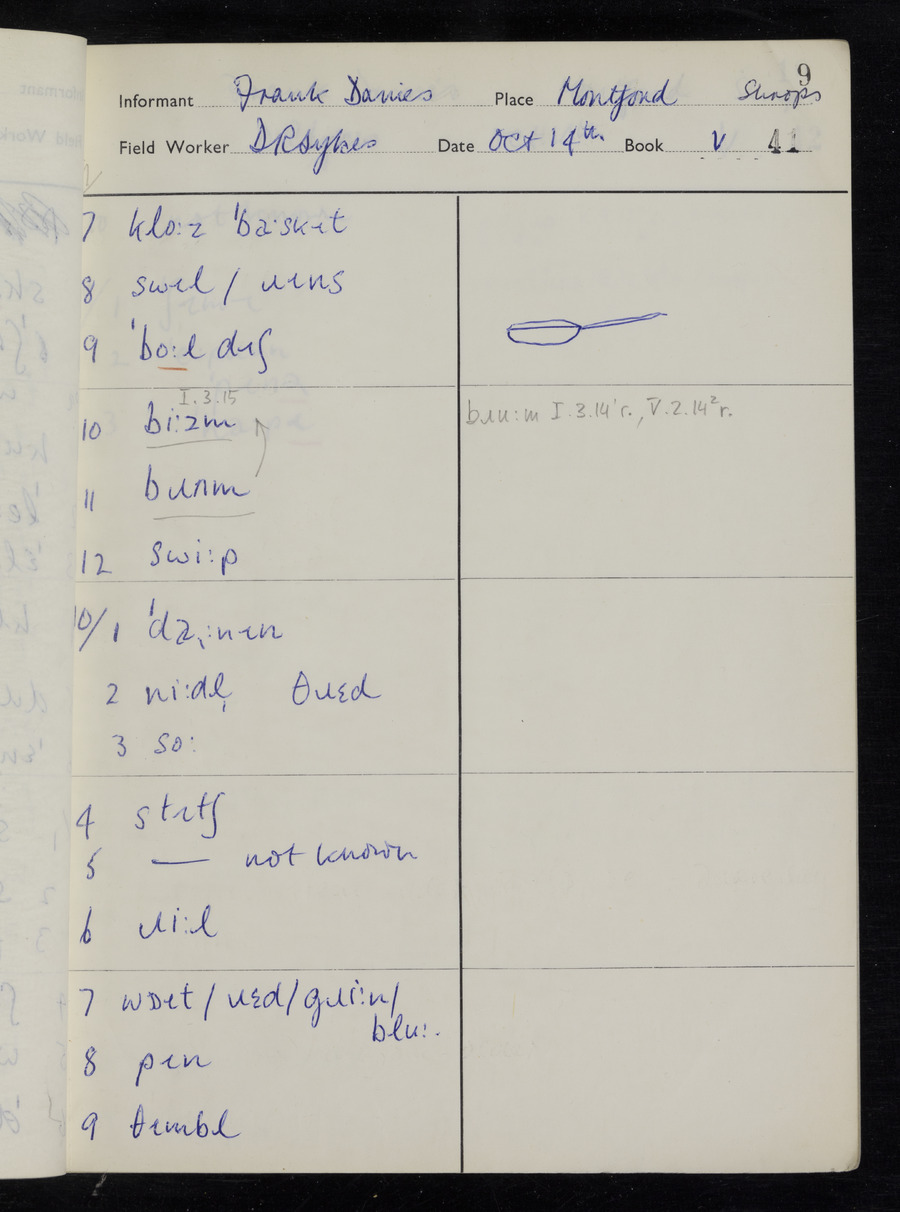 9
Informant Frank Davies Place Montford Shrops
Field Worker DRSykes Date Oct 14th Book V 41
7 kloːz ˈbaːskɪt
8 swɪl / ɹɪns
9 ˈboːɪl dɪʃ
I.3.15
10 biːzm bɹuːm I.3.14¹r., V.2.14²r.
11 bɹʌm
12 swiːp
10/1
2 niːdl̩ θɹɛd
3 soː
4 stɪtʃ
5 — not known
6 ɹiːl
7 wɒɪt / ɹɛd / gɹiːn /
bluː.
8 pɪn
9 θɪmbl